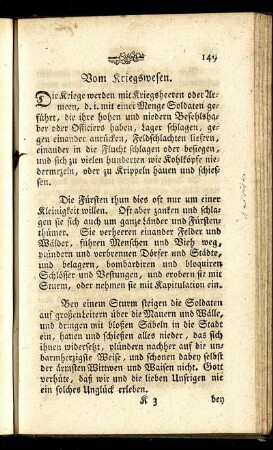 149
Vom Kriegswesen.
Die Kriege werden mit Kriegsheeren oder Ar-
meen, d. i. mit einer Menge Soldaten ge-
führt, die ihre hohen und niedern Befehlsha-
ber oder Officiers haben, Lager schlagen, ge-
gen einander anrücken, Feldschlachten liefern,
einander in die Flucht schlagen oder besiegen,
und sich zu vielen hunderten wie Kohlköpfe nie-
dermezeln, oder zu Krippeln hauen und schies-
sen.
Die Fürsten thun dies oft nur um einer
Kleinigkeit willen. Oft aber zanken und schla-
gen sie sich auch um ganze Länder und Fürsten-
thümer. Sie verheeren einander Felder und
Wälder, führen Menschen und Vieh weg,
plündern und verbrennen Dörfer und Städte,
und belagern, bombardiren und bloquiren
Schlösser und Vestungen, und erobern sie mit
Sturm, oder nehmen sie mit Kapitulation ein.
Bey einem Sturm steigen die Soldaten
auf grossenleitern über die Mauern und Wälle,
und dringen mit bloßen Säbeln in die Stadt
ein, hauen und schießen alles nieder, das sich
ihnen widersetzt, plündern nachher auf die un-
barmherzigste Weise, und schonen dabey selbst
der ärmsten Wittwen und Waisen nicht. Gott
verhüte, daß wir und die lieben Unsrigen nie
ein solches Unglück erleben.
K 3 bey